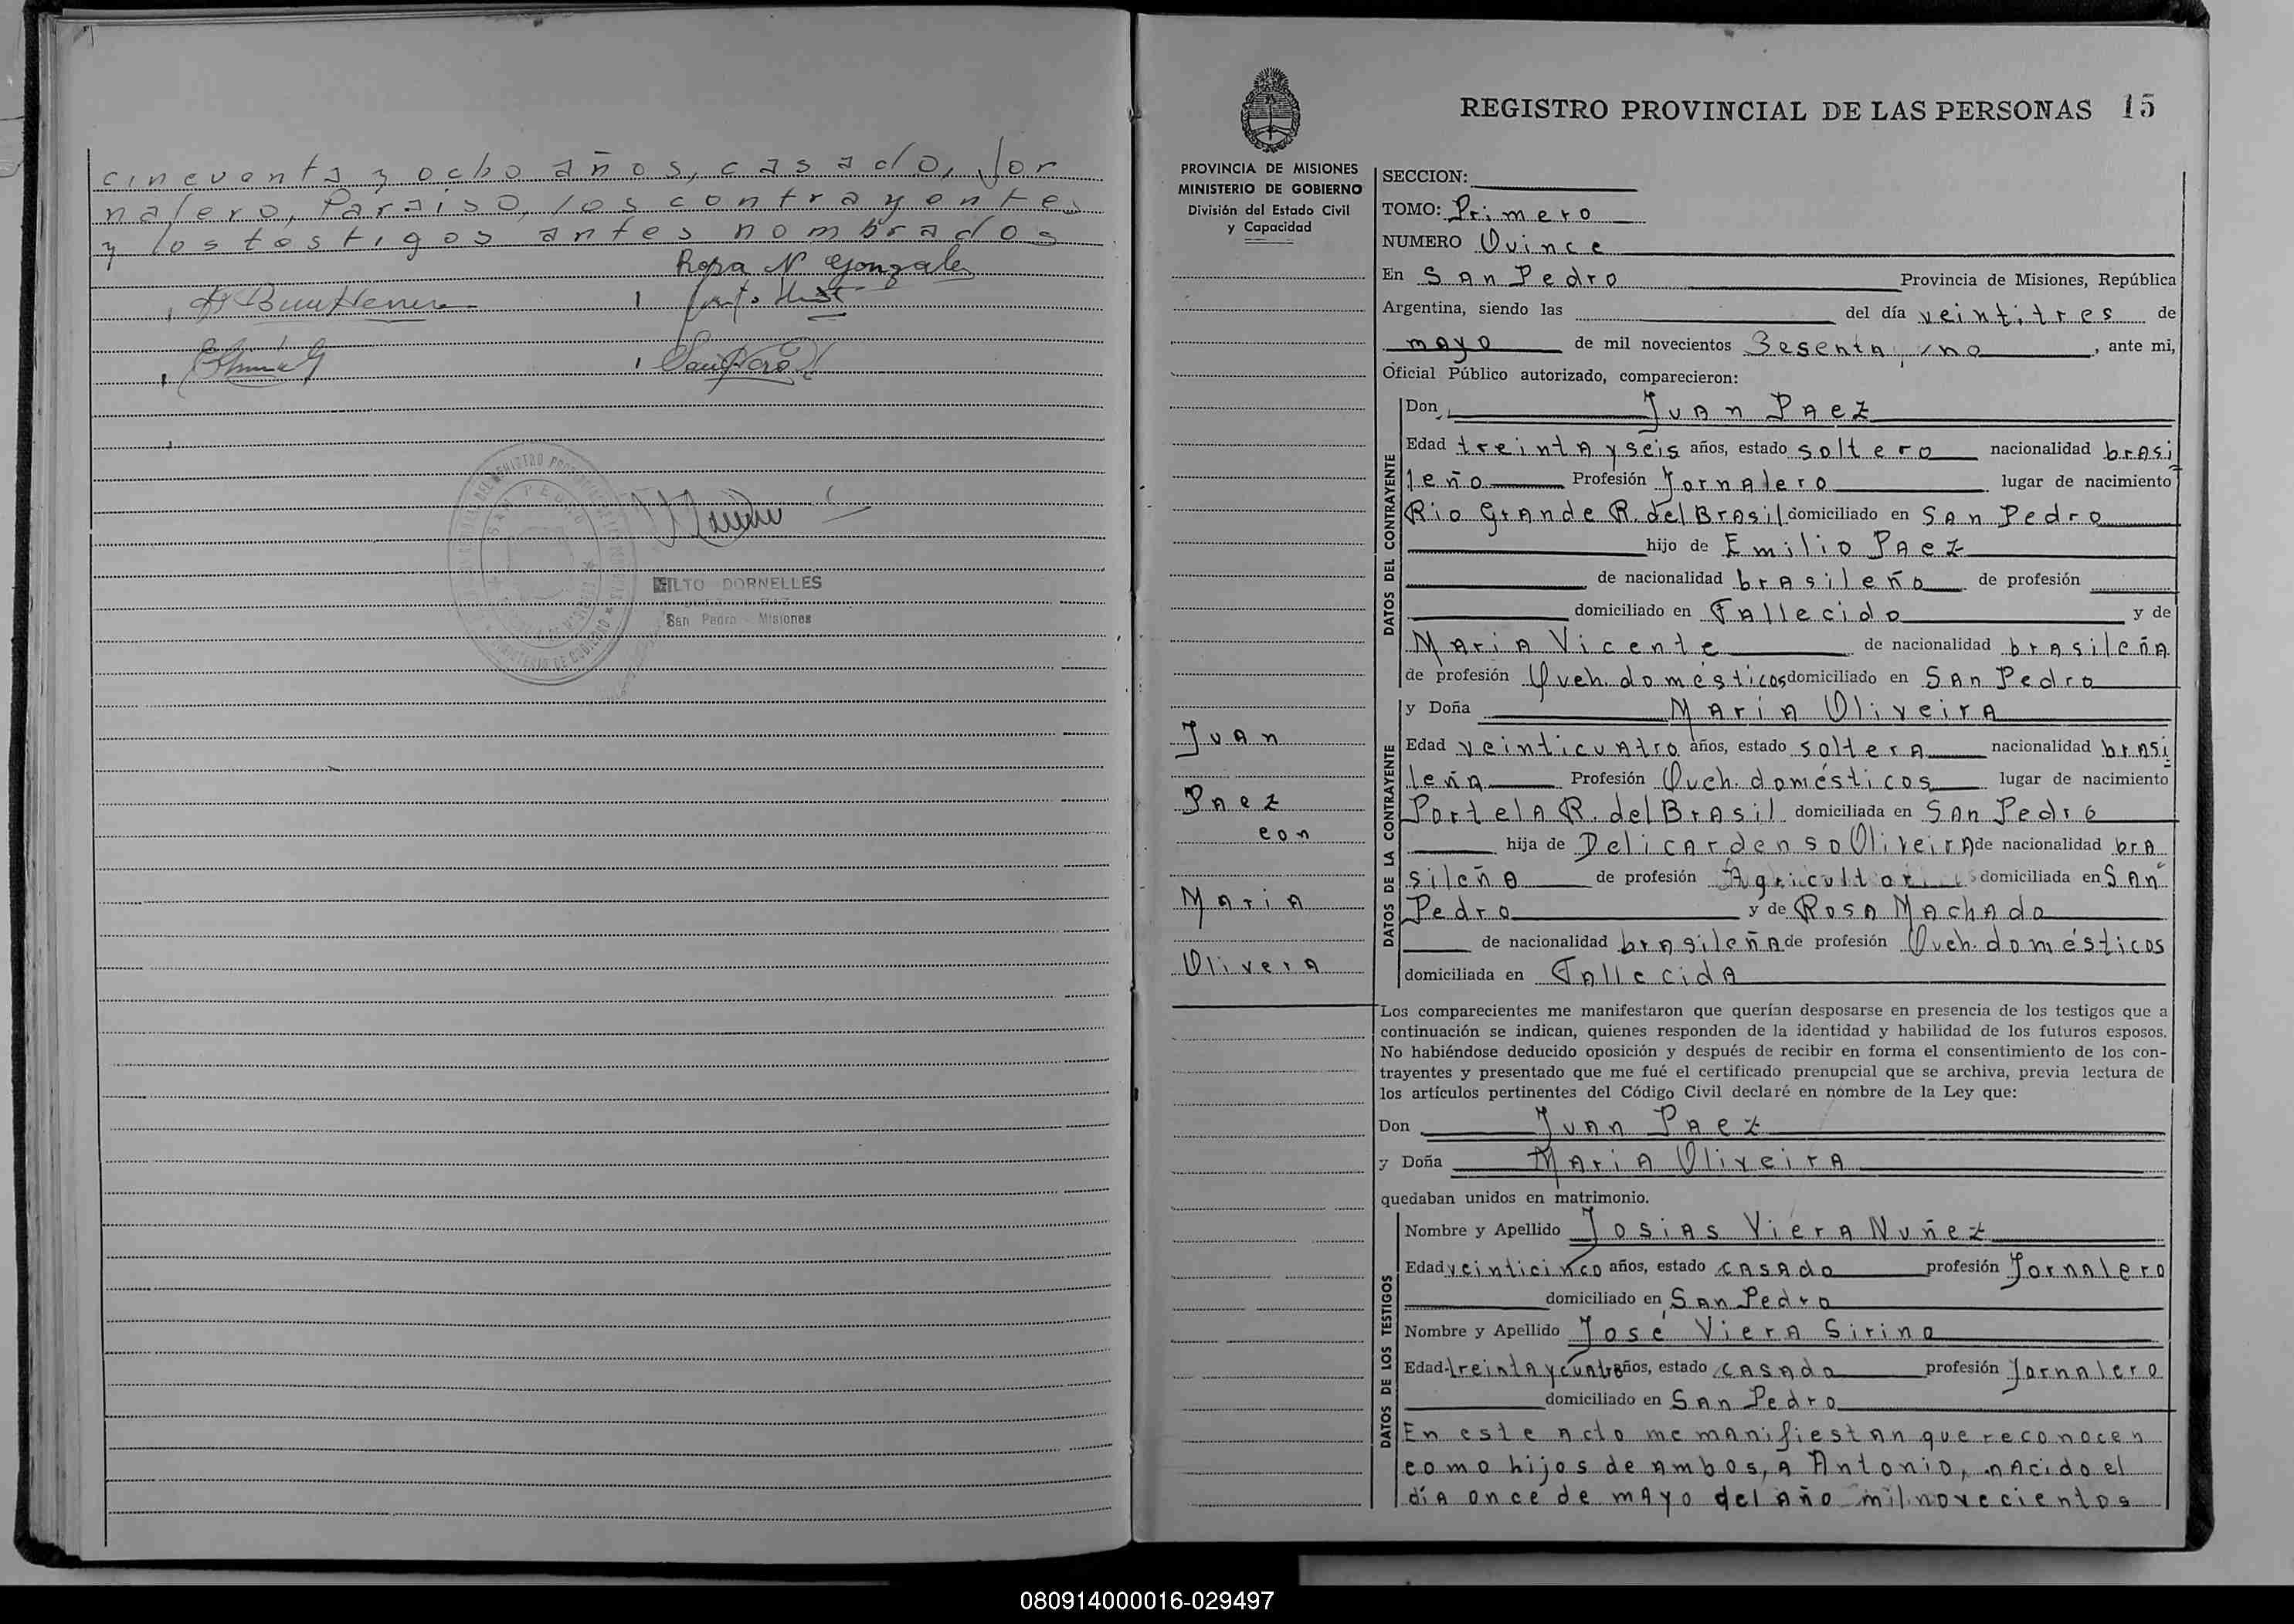 cincuenta y ocho años, casado, Jor
nalero, Paraiso, los contrayentes
y los testigos antes nombrados
Rosa N Gonzalez
SAN PEDRO
MILTO DORNELLES
San Pedro - Misiones
REGISTRO PROVINCIAL DE LAS PERSONAS 15
PROVINCIA DE MISIONES
MINISTERIO DE GOBIERNO
División del Estado Civil
y Capacidad
Juan
Paez
con
Maria
Olivera
SECCION:
TOMO: Primero
NUMERO Quince
En San Pedro Provincia de Misiones, República
Argentina, siendo las del día veintitres de
mayo de mil novecientos Sesenta y uno, ante mi,
Oficial Público autorizado, comparecieron:
DATOS DEL CONTRAYENTE
Don Juan Paez
Edad treinta y seis años, estado soltero nacionalidad brasi
leño Profesión Jornalero lugar de nacimiento
Rio Grande R. del Brasil domiciliado en San Pedro
hijo de Emilio Paez
de nacionalidad brasileño de profesión
domiciliado en Fallecido y de
Maria Vicente de nacionalidad brasileña
de profesión Queh. domésticos domiciliado en San Pedro
DATOS DE LA CONTRAYENTE
y Doña Maria Oliveira
Edad veinticuatro años, estado soltera nacionalidad brasi
leña Profesión Queh. domésticos lugar de nacimiento
Portela R. del Brasil domiciliada en San Pedro
hija de Delicardenso Oliveira de nacionalidad bra
sileña de profesión Agricultor domiciliada en San
Pedro y de Rosa Machado
de nacionalidad brasileña de profesión Queh. domésticos
domiciliada en Fallecida
Los comparecientes me manifestaron que querían desposarse en presencia de los testigos que a
continuación se indican, quienes responden de la identidad y habilidad de los futuros esposos.
No habiéndose deducido oposición y después de recibir en forma el consentimiento de los con-
trayentes y presentado que me fué el certificado prenupcial que se archiva, previa lectura de
los artículos pertinentes del Código Civil declaré en nombre de la Ley que:
Don Juan Paez
y Doña Maria Oliveira
quedaban unidos en matrimonio.
DATOS DE LOS TESTIGOS
Nombre y Apellido Josias Viera Nuñez
Edad veinticinco años, estado casado profesión Jornalero
domiciliado en San Pedro
Nombre y Apellido José Viera Sirino
Edad treinta y cuatro años, estado casado profesión Jornalero
domiciliado en San Pedro
En este acto me manifiestan que reconocen
como hijos de ambos, a Antonio, nacido el
día once de mayo del año mil novecientos
080914000016-029497